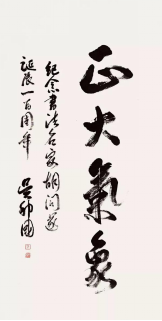 正大氣象
纪念書法名家胡问遂
诞辰一百周年